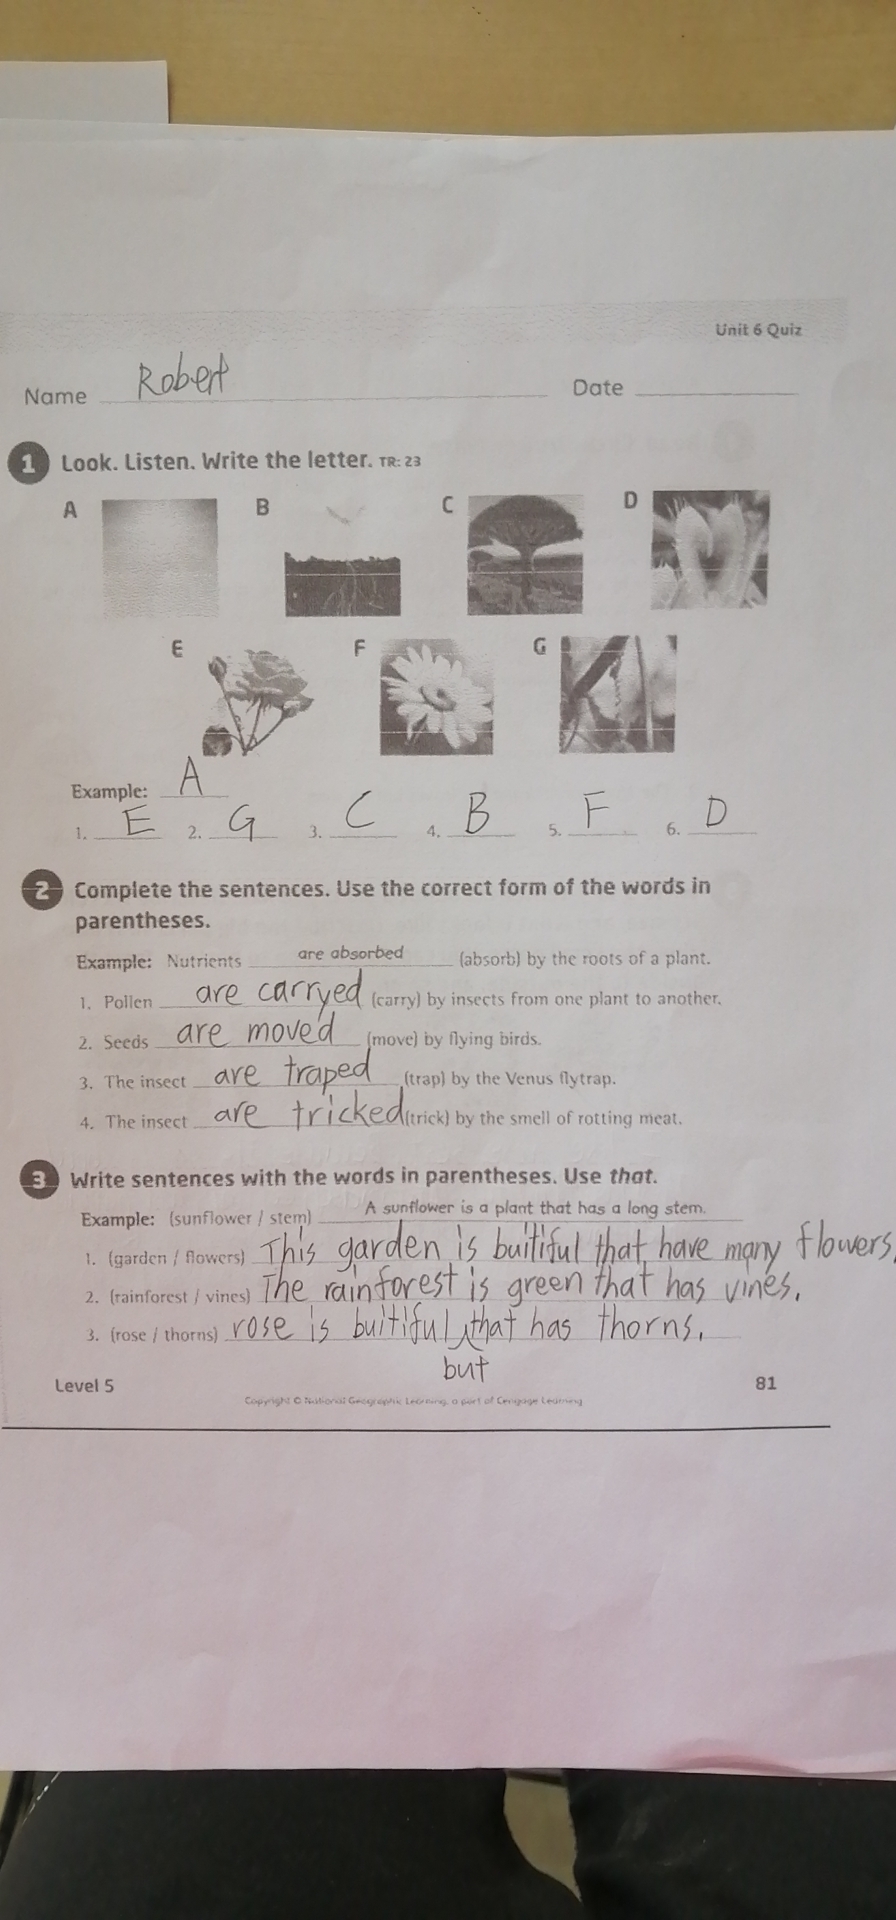 Unit 6 Quiz
Name Robert Date
1 Look. Listen. Write the letter. TR: 23
A B C D
E F G
Example: A
1. E 2. G 3. C 4. B 5. F 6. D
2 Complete the sentences. Use the correct form of the words in
parentheses.
Example: Nutrients are absorbed (absorb) by the roots of a plant.
1. Pollen are carryed (carry) by insects from one plant to another.
2. Seeds are moved (move) by flying birds.
3. The insect are traped (trap) by the Venus flytrap.
4. The insect are tricked (trick) by the smell of rotting meat.
3 Write sentences with the words in parentheses. Use that.
Example: (sunflower / stem) A sunflower is a plant that has a long stem.
1. (garden / flowers) This garden is buitiful that have many flowers.
2. (rainforest / vines) The rainforest is green that has vines.
3. (rose / thorns) rose is buitiful that has thorns.
but
Level 5 81
Copyright © National Geographic Learning, a part of Cengage Learning